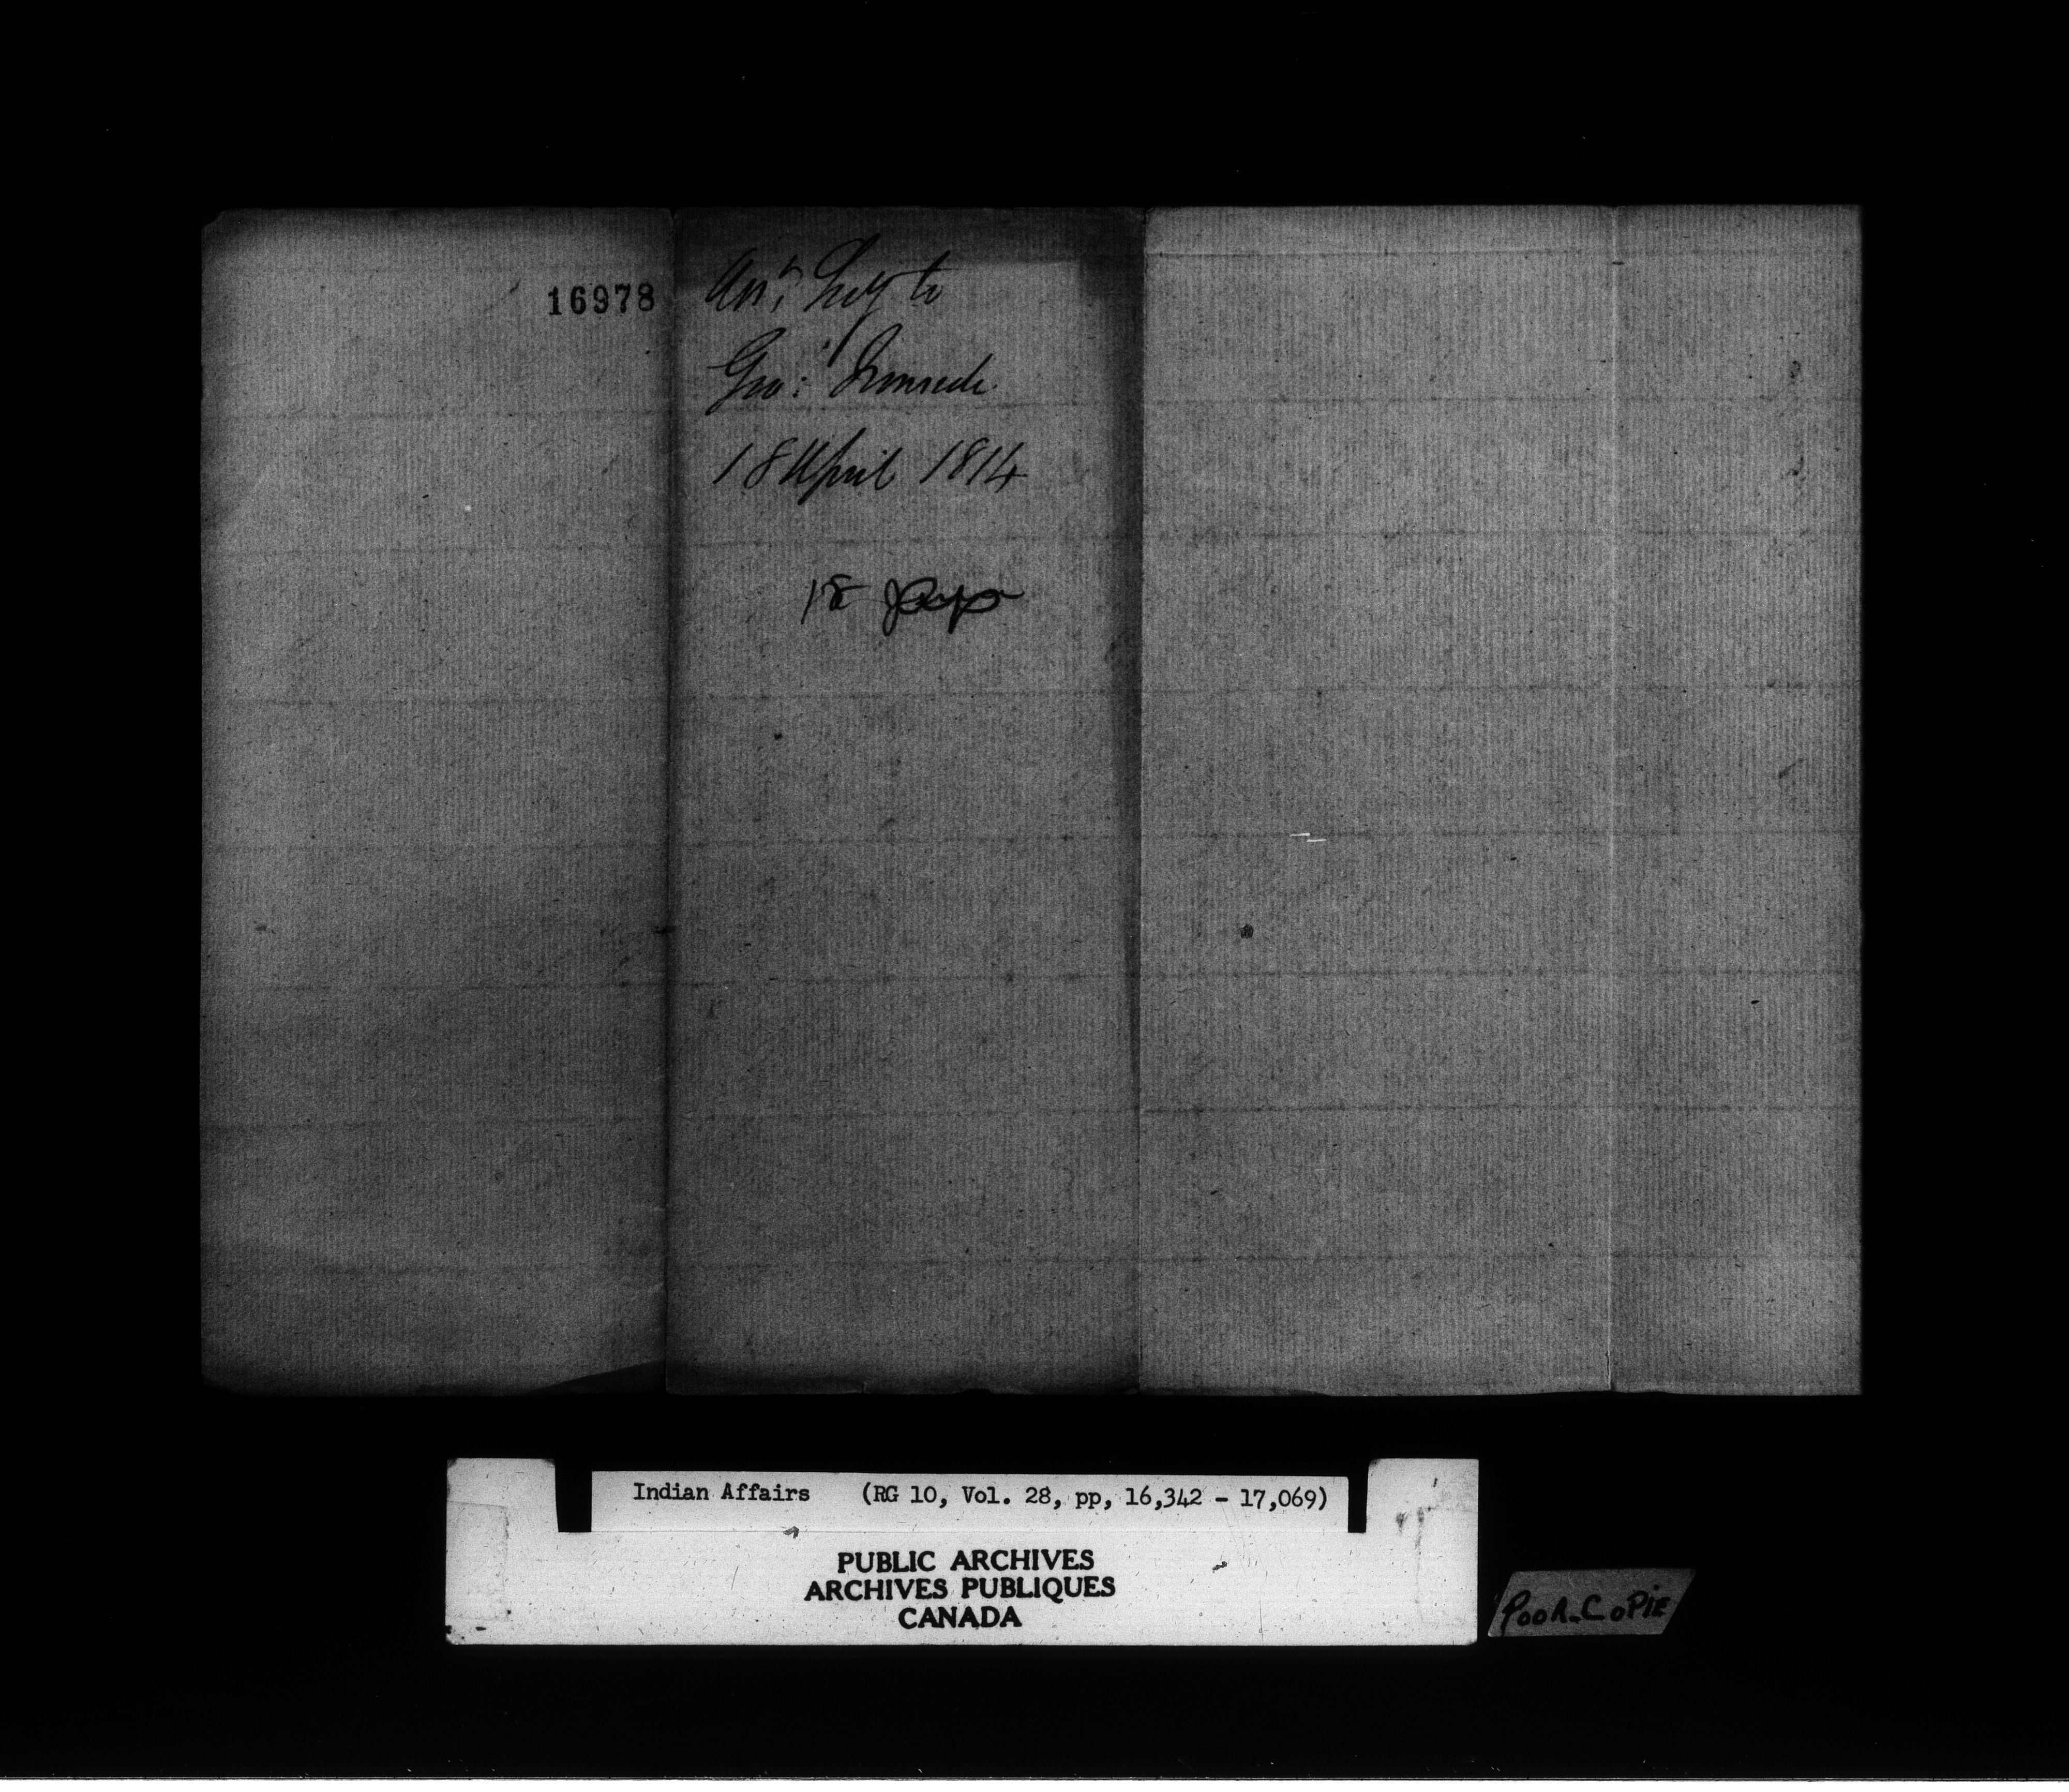 16978
to
Geo: Ironside
18 April 1814
18
Indian Affairs (RG 10, Vol. 28, pp, 16,342 - 17,069)
PUBLIC ARCHIVES
ARCHIVES PUBLIQUES
CANADA
POOR_COPIE